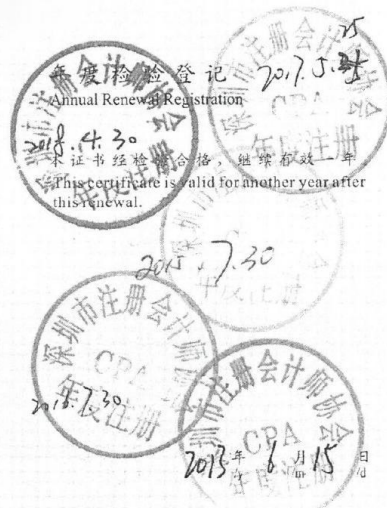 年度检验登记
Annual Renewal Registration
2017.5.
2018.4.30
本证书经检验合格，继续有效一年
This certificate is valid for another year after
this renewal.
深圳市注册会计师协会
CPA
年度注册
深圳市注册会计师协会
CPA
年度注册
2015.7.30
年度注册
深圳市注册会计师协会
CPA
年度注册
2016.7.30
深圳市注册会计师协会
CPA
年度注册
2013年6月15日